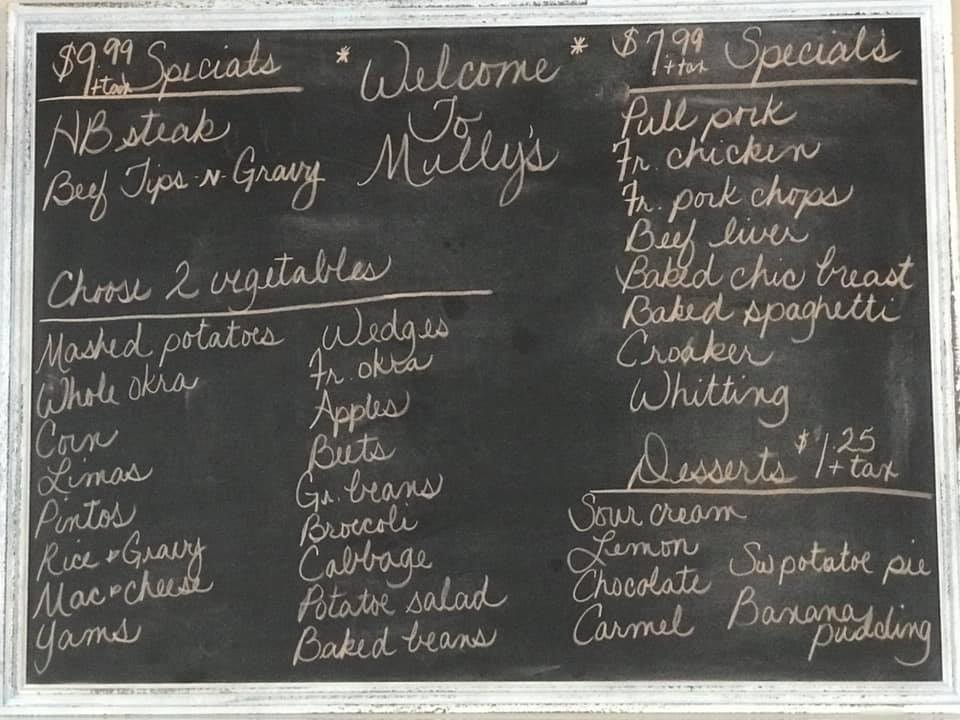 $9.99 +tax Specials
HB steak
Beef Tips -N- Gravy
* Welcome *
To
Mully's
$7.99 +tax Specials
Pull pork
Fr. chicken
Fr. pork chops
Beef liver
Baked chic breast
Baked spaghetti
Croaker
Whitting
Choose 2 vegetables
Mashed potatoes
Whole okra
Corn
Limas
Pintos
Rice & Gravy
Mac & cheese
Yams
Wedges
Fr. okra
Apples
Beets
Gr. beans
Broccoli
Cabbage
Potatoe salad
Baked beans
Desserts $1.25 + tax
Sour cream
Lemon
Chocolate
Carmel
Sw potatoe pie
Banana
pudding